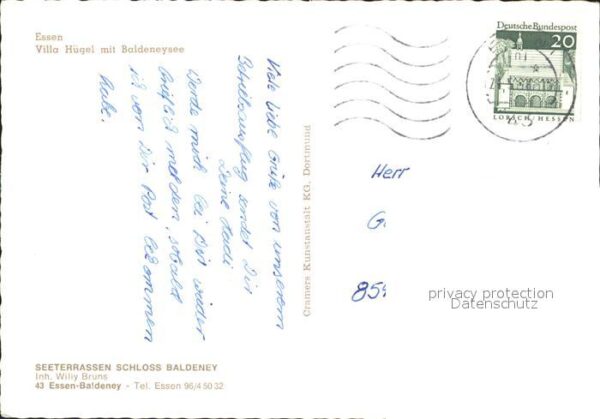 Essen
Villa Hügel mit Baldeneysee
Viele liebe Grüße von unserem
Betriebsausflug sendet Dir
Deine Hadi
Werde mich bei Dir wieder
brieflich melden, sobald
ich von Dir Post bekommen
habe.
Cramers Kunstanstalt KG, Dortmund
Deutsche Bundespost
20
LORSCH/HESSEN
Herr
G
85
privacy protection
Datenschutz
SEETERRASSEN SCHLOSS BALDENEY
Inh. Willy Bruns
43 Essen-Baldeney - Tel. Essen 96/4 50 32